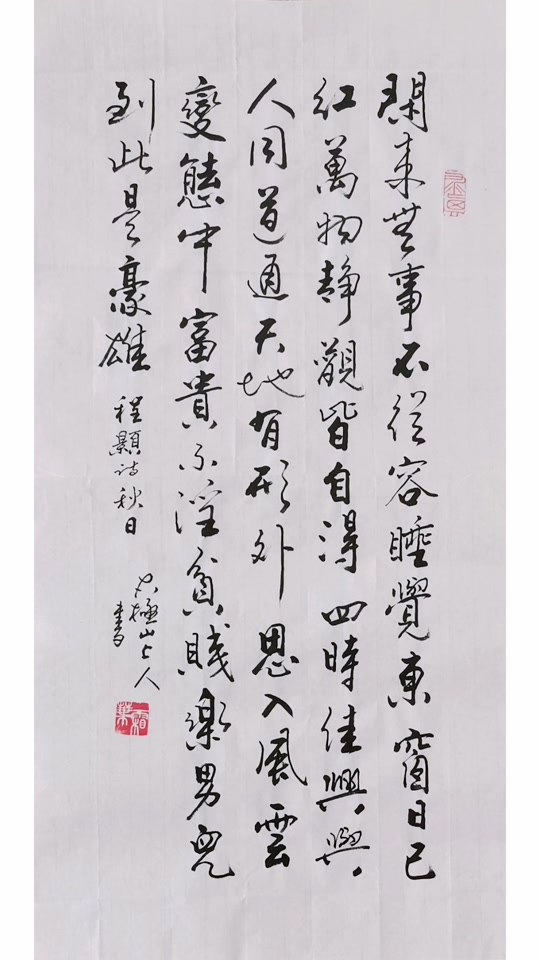 閑来無事不從容睡覺東窗日已
紅萬物靜觀皆自得四時佳興與
人同道通天地有形外思入風雲
變態中富貴不淫貧賤樂男兒
到此是豪雄 程顥詩秋日
極山上人
書